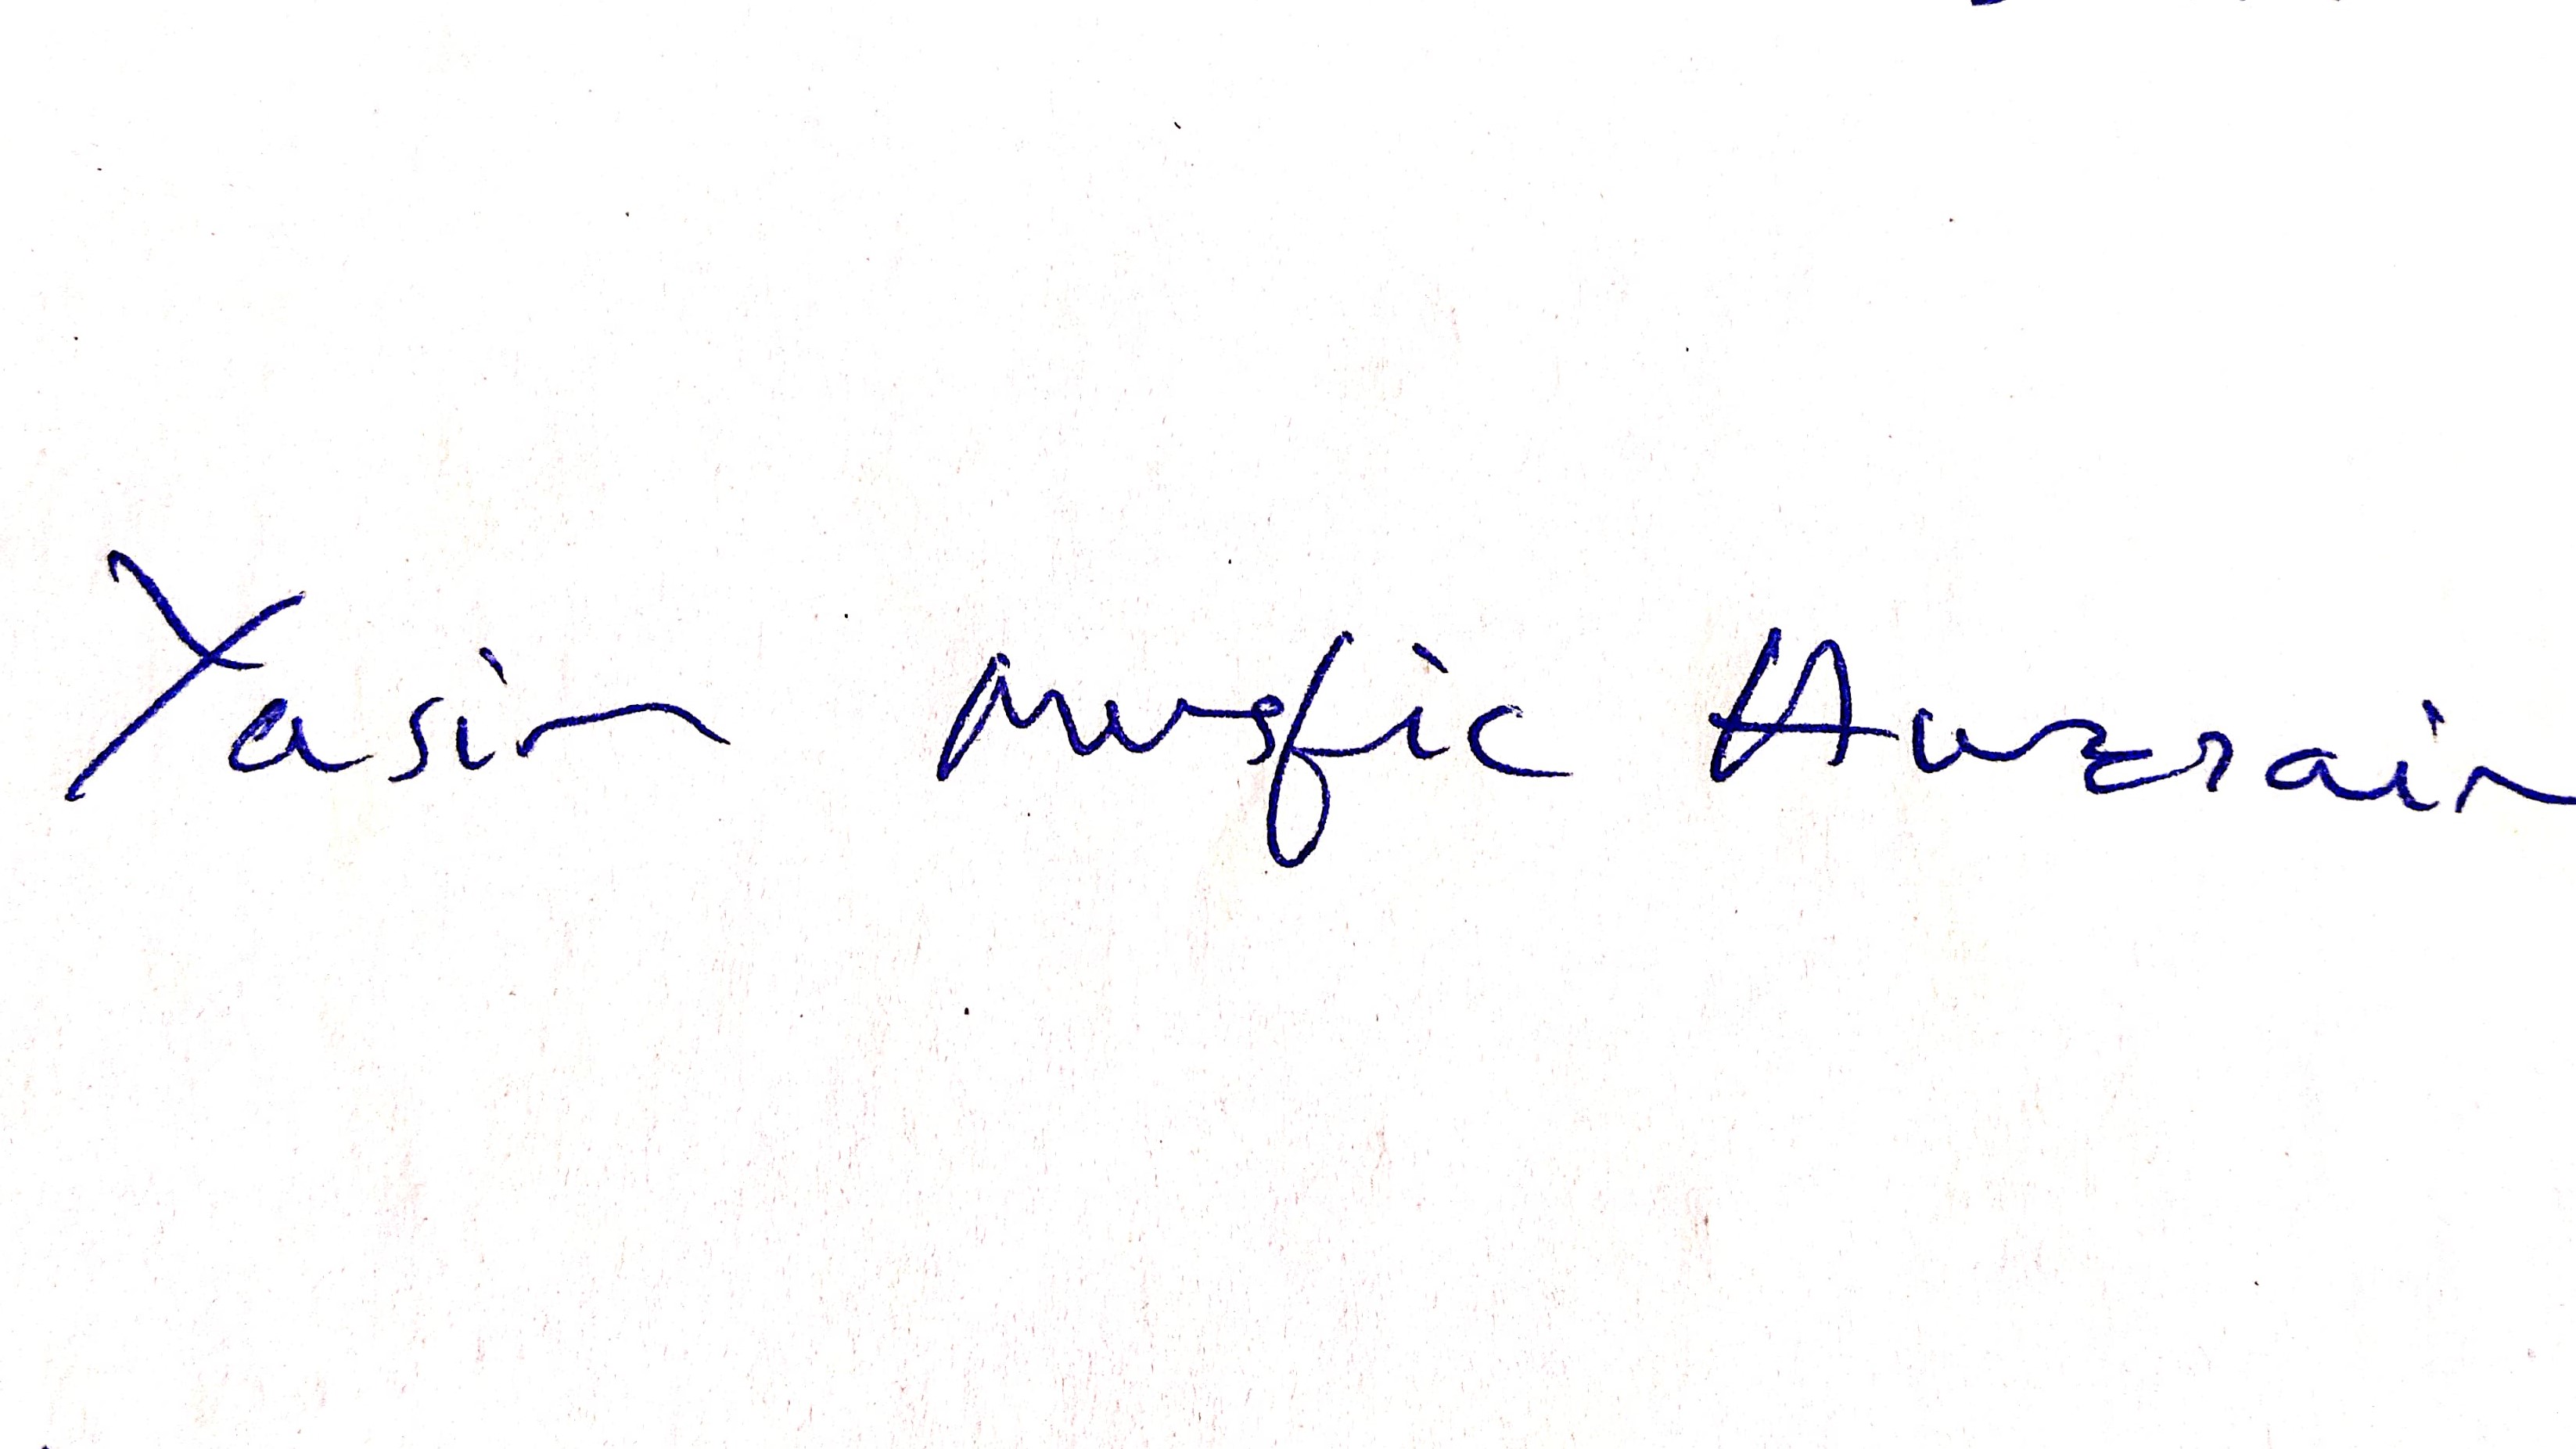 Yasin Musfic Huzrain